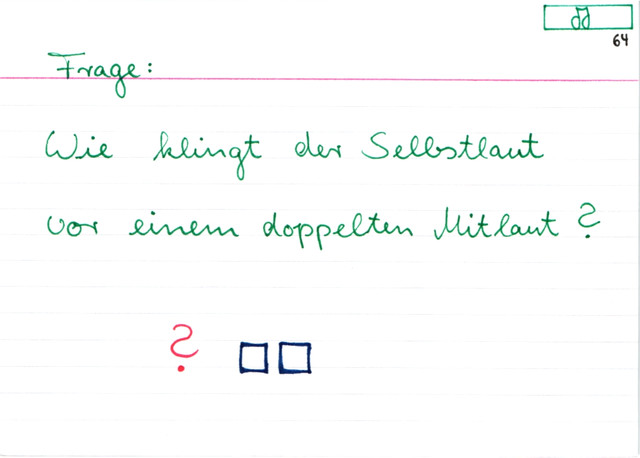 dd
64
Frage:
Wie klingt der Selbstlaut
vor einem doppelten Mitlaut?
?